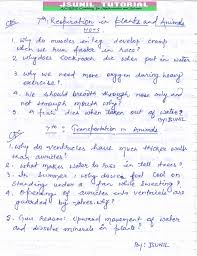 JSUNIL TUTORIAL
7th Respiration in plants and Animals
HOTS
1. Why do muscles in leg develop cramp
when we run faster in race?
2. Why does Cockroach die when put in water
3. Why we need more oxygen during heavy
exercise?
4. We should breath through nose only and
not through mouth why?
5. A fish dies when taken out of water?
By: JSUNIL
7th: Transportation in Animals
1. Why do ventricles have much thicker walls
than auricles?
2. What makes water to rise in tall trees?
3. In Summer, why does feel cool on
standing under a fan while sweating?
4. Opening of auricles into ventricles are
guarded by valves. why?
5. Give Reason: Upward movement of water
and dissolve minerals in plants?
By: JSUNIL